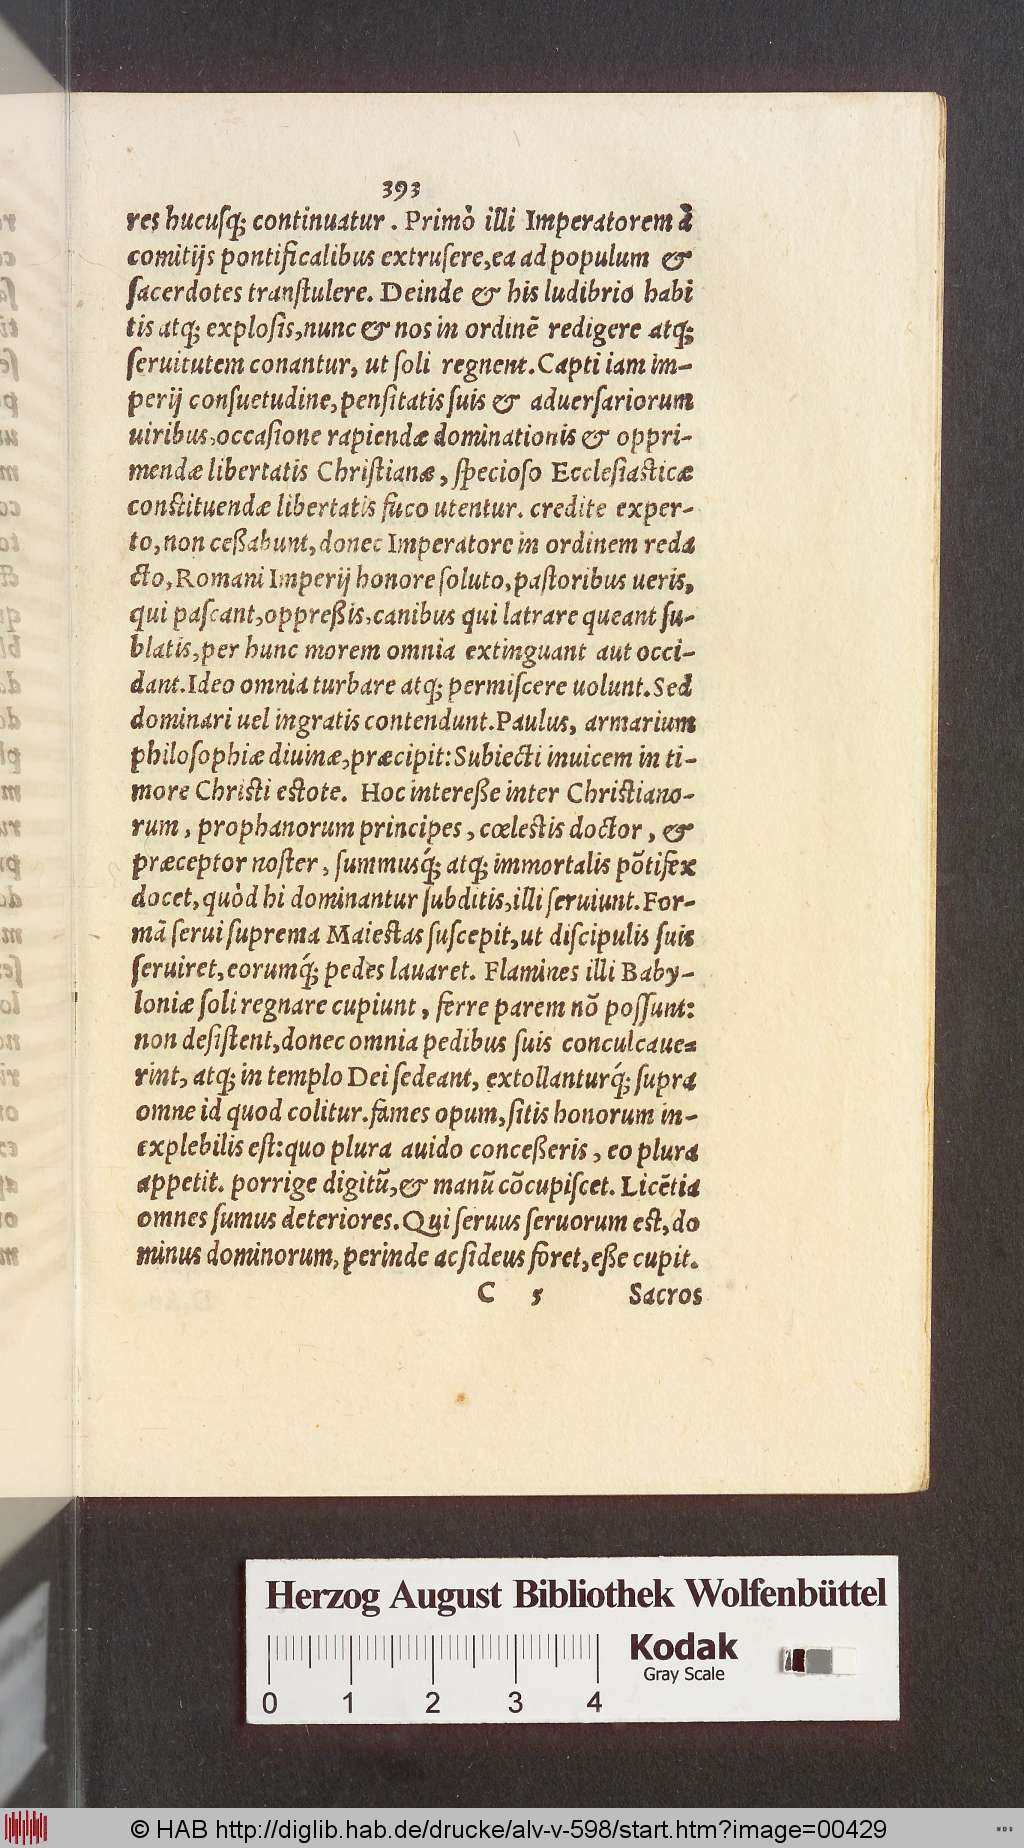 393
res hucuſq; continuatur. Primò illi Imperatorem à
comitijs pontificalibus extruſere, ea ad populum &
ſacerdotes tranſtulere. Deinde & his ludibrio habi
tis atq; exploſis, nunc & nos in ordinē redigere atq;
ſeruitutem conantur, ut ſoli regnent. Capti iam im-
perij conſuetudine, penſitatis ſuis & aduerſariorum
uiribus, occaſione rapiendæ dominationis & oppri-
mendæ libertatis Chriſtianæ, ſpecioſo Eccleſiaſticæ
conſtituendæ libertatis fuco utentur. credite exper-
to, non ceßabunt, donec Imperatore in ordinem reda
cto, Romani Imperij honore ſoluto, paſtoribus ueris,
qui paſcant, oppreßis, canibus qui latrare queant ſu-
blatis, per hunc morem omnia extinguant aut occi-
dant. Ideo omnia turbare atq; permiſcere uolunt. Sed
dominari uel ingratis contendunt. Paulus, armarium
philoſophiæ diuinæ, præcipit: Subiecti inuicem in ti-
more Chriſti eſtote. Hoc intereße inter Chriſtiano-
rum, prophanorum principes, cœleſtis doctor, &
præceptor noſter, ſummusq́; atq; immortalis pōtifex
docet, quòd hi dominantur ſubditis, illi ſeruiunt. For-
mā ſerui ſuprema Maieſtas ſuſcepit, ut diſcipulis ſuis
ſeruiret, eorumq́; pedes lauaret. Flamines illi Baby-
loniæ ſoli regnare cupiunt, ferre parem nō poſſunt:
non deſiſtent, donec omnia pedibus ſuis conculcaue-
rint, atq; in templo Dei ſedeant, extollanturq́; ſupra
omne id quod colitur. fames opum, ſitis honorum in-
explebilis eſt: quo plura auido conceßeris, eo plura
appetit. porrige digitū, & manū cōcupiſcet. Licētia
omnes ſumus deteriores. Qui ſeruus ſeruorum eſt, do
minus dominorum, perinde ac ſi deus foret, eße cupit.
C 5 Sacros
Herzog August Bibliothek Wolfenbüttel
Kodak
Gray Scale
0 1 2 3 4
© HAB http://diglib.hab.de/drucke/alv-v-598/start.htm?image=00429